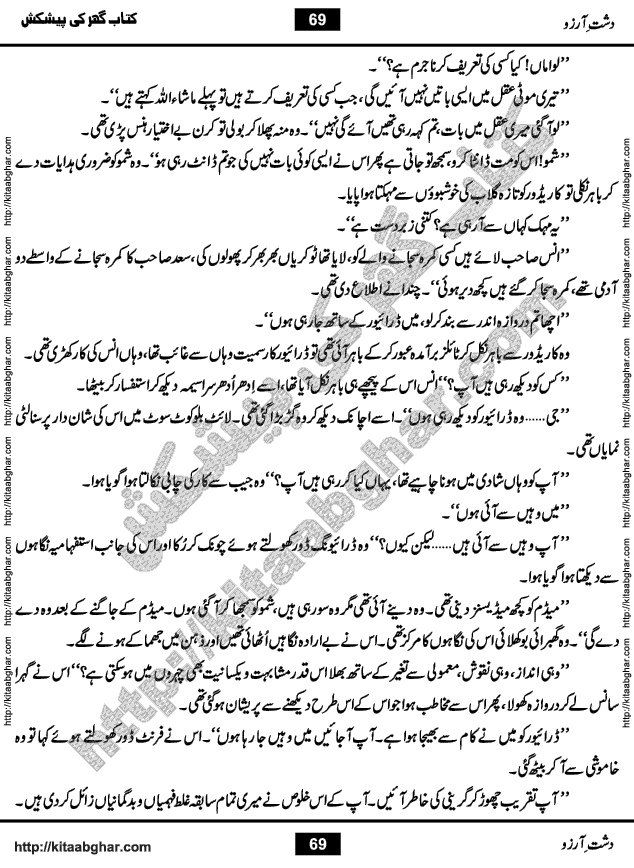 کتاب گھر کی پیشکش 69 دشتِ آرزو
’’لواماں! کیا کسی کی تعریف کرنا جرم ہے؟‘‘۔
’’تیری موٹی عقل میں ایسی باتیں نہیں آئیں گی، جب کسی کی تعریف کرتے ہیں تو پہلے ماشاء اللہ کہتے ہیں‘‘۔
’’لو آگئی میری عقل میں بات، تم کہہ رہی تھیں آئے گی نہیں‘‘۔ وہ منہ پھلا کر بولی تو کرن بے اختیار ہنس پڑی تھی۔
’’شمو! اس کو مت ڈانٹا کرو، سمجھ تو جاتی ہے پھر اس نے ایسی کوئی بات نہیں کی جو تم ڈانٹ رہی ہو‘‘۔ وہ شمو کو ضروری ہدایات دے
کر باہر نکلی تو کاریڈور کو تازہ گلاب کی خوشبوؤں سے مہکتا ہوا پایا۔
’’یہ مہک کہاں سے آ رہی ہے؟ کتنی زبردست ہے‘‘۔
’’انس صاحب لائے ہیں کسی کمرہ سجانے والے کو، لایا تھا ٹوکریاں بھر بھر کر پھولوں کی، سعد صاحب کا کمرہ سجانے کے واسطے دو
آدمی تھے، کمرہ سجا کر گئے ہیں کچھ دیر ہوئی‘‘۔ چندا نے اطلاع دی تھی۔
’’اچھا تم دروازہ اندر سے بند کر لو، میں ڈرائیور کے ساتھ جا رہی ہوں‘‘۔
وہ کاریڈور سے باہر نکل کر ٹائلز برآمدہ عبور کر کے باہر آئی تھی تو ڈرائیور کار سمیت وہاں سے غائب تھا، وہاں انس کی کار کھڑی تھی۔
’’کس کو دیکھ رہی ہیں آپ؟‘‘ انس اس کے پیچھے ہی باہر نکل آیا تھا، اسے اِدھر اُدھر سراسیمہ دیکھ کر استفسار کر بیٹھا۔
’’جی...... وہ ڈرائیور کو دیکھ رہی ہوں‘‘۔ اسے اچانک دیکھ کر وہ گڑبڑا گئی تھی۔ لائٹ بلو کوٹ سوٹ میں اس کی شان دار پرسنالٹی
نمایاں تھی۔
’’آپ کو وہاں شادی میں ہونا چاہیے تھا، یہاں کیا کر رہی ہیں آپ؟‘‘ وہ جیب سے کار کی چابی نکالتا ہوا گویا ہوا۔
’’میں وہیں سے آئی ہوں‘‘۔
’’آپ وہیں سے آئی ہیں...... لیکن کیوں؟‘‘ وہ ڈرائیونگ ڈور کھولتے ہوئے چونک کر رُکا اور اس کی جانب استفہامیہ نگاہوں
سے دیکھتا ہوا گویا ہوا۔
’’میڈم کو کچھ میڈیسنز دینی تھی۔ وہ دینے آئی تھی مگر وہ سو رہی ہیں، شمو کو سمجھا کر آ گئی ہوں۔ میڈم کے جاگنے کے بعد وہ دے
دے گی‘‘۔ وہ گھبرائی بوکھلائی اس کی نگاہوں کا مرکز تھی۔ اس نے بے ارادہ نگاہیں اُٹھائی تھیں اور ذہن میں جھماکے ہونے لگے۔
’’وہی انداز، وہی نقوش، معمولی سے تغیر کے ساتھ بھلا اس قدر مشابہت و یکسانیت بھی چہروں میں ہو سکتی ہے؟‘‘ اس نے گہرا
سانس لے کر دروازہ کھولا، پھر اس سے مخاطب ہوا جو اس کے اس طرح دیکھنے سے پریشان ہو گئی تھی۔
’’ڈرائیور کو میں نے کام سے بھیجا ہوا ہے۔ آپ آجائیں میں وہیں جا رہا ہوں‘‘۔ اس نے فرنٹ ڈور کھولتے ہوئے کہا تو وہ
خاموشی سے آ کر بیٹھ گئی۔
’’آپ تقریب چھوڑ کر گرینی کی خاطر آئیں۔ آپ کے اس خلوص نے میری تمام سابقہ غلط فہمیاں و بدگمانیاں زائل کر دی ہیں۔
http://kitaabghar.com 69 دشتِ آرزو
http://kitaabghar.com http://kitaabghar.com http://kitaabghar.com http://kitaabghar.com http://kitaabghar.com http://kitaabghar.com
http://kitaabghar.com http://kitaabghar.com http://kitaabghar.com http://kitaabghar.com http://kitaabghar.com http://kitaabghar.com
کتاب گھر کی پیشکش
http://kitaabghar.com